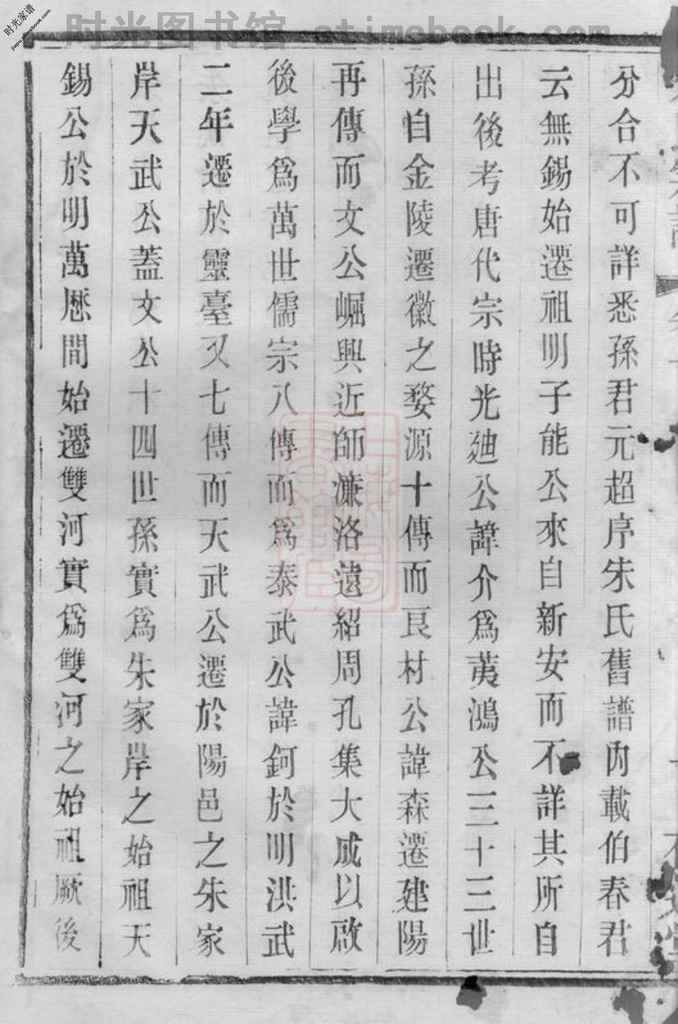 时光家谱
www.stimebook.com
时光图书馆 stimebook.com
分合不可詳悉孫君元超序朱氏舊譜内載伯春君
云無錫始遷祖明子能公來自新安而不詳其所自
出後考唐代宗時光廸公諱介爲荑鴻公三十三世
孫自金陵遷徽之婺源十傳而艮材公諱森遷建陽
再傳而文公崛興近師濂洛遠紹周孔集大成以啟
後學爲萬世儒宗八傳而爲泰武公諱鈳於明洪武
二年遷於靈臺又七傳而天武公遷於陽邑之朱家
岸天武公蓋文公十四世孫實爲朱家岸之始祖天
錫公於明萬厯間始遷雙河實爲雙河之始祖厥後